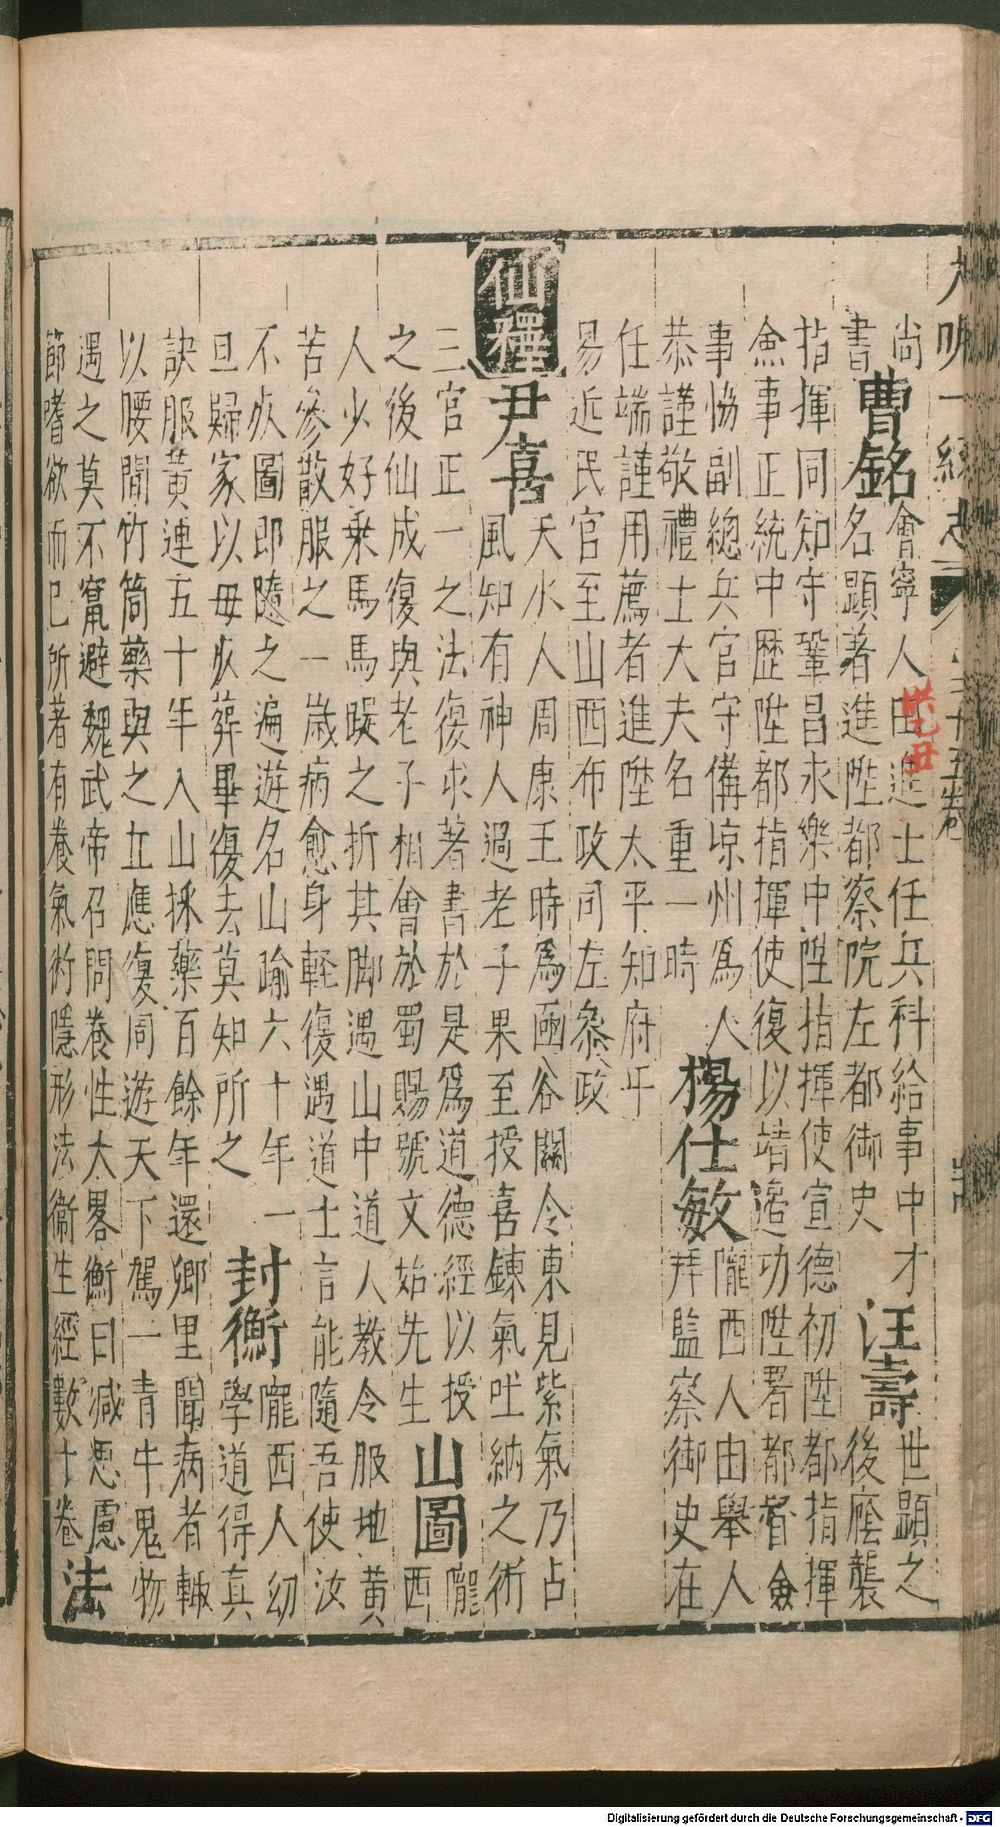 大明一統志 三十五卷
尚
書
曹銘
會寧人由進士任兵科給事中才
名顯著進陞都察院左都御史
汪壽
世顯之
後廕襲
指揮同知守鞏昌永樂中陞指揮使宣德初陞都指揮
僉事正統中歷陞都指揮使復以靖邊功陞署都督僉
事恊副總兵官守備凉州爲人
恭謹敬禮士大夫名重一時
楊仕敏
隴西人由舉人
拜監察御史在
任端謹用薦者進陞太平知府平
易近民官至山西布政司左叅政
仙釋
尹喜
天水人周康王時爲凾谷關令東見紫氣乃占
風知有神人過老子果至授喜鍊氣吐納之術
三官正一之法復求著書於是爲道德經以授
之後仙成復與老子相會於蜀賜號文始先生
山圖
隴
西
人少好乗馬馬踶之折其脚遇山中道人教令服地黃
苦參散服之一歲病愈身輕復遇道士言能隨吾使汝
不疾圖即隨之遍遊名山踰六十年一
旦歸家以毋疾葬畢復去莫知所之
封衡
隴西人幼
學道得真
訣服黃連五十年入山採藥百餘年還鄉里聞病者輒
以腰間竹筒藥與之立應復周遊天下駕一青牛鬼物
遇之莫不竄避魏武帝召問養性大畧衡曰減思慮
節嗜欲而已所著有養氣術隱形法衞生經數十卷
法
Digitalisierung gefördert durch die Deutsche Forschungsgemeinschaft - DFG